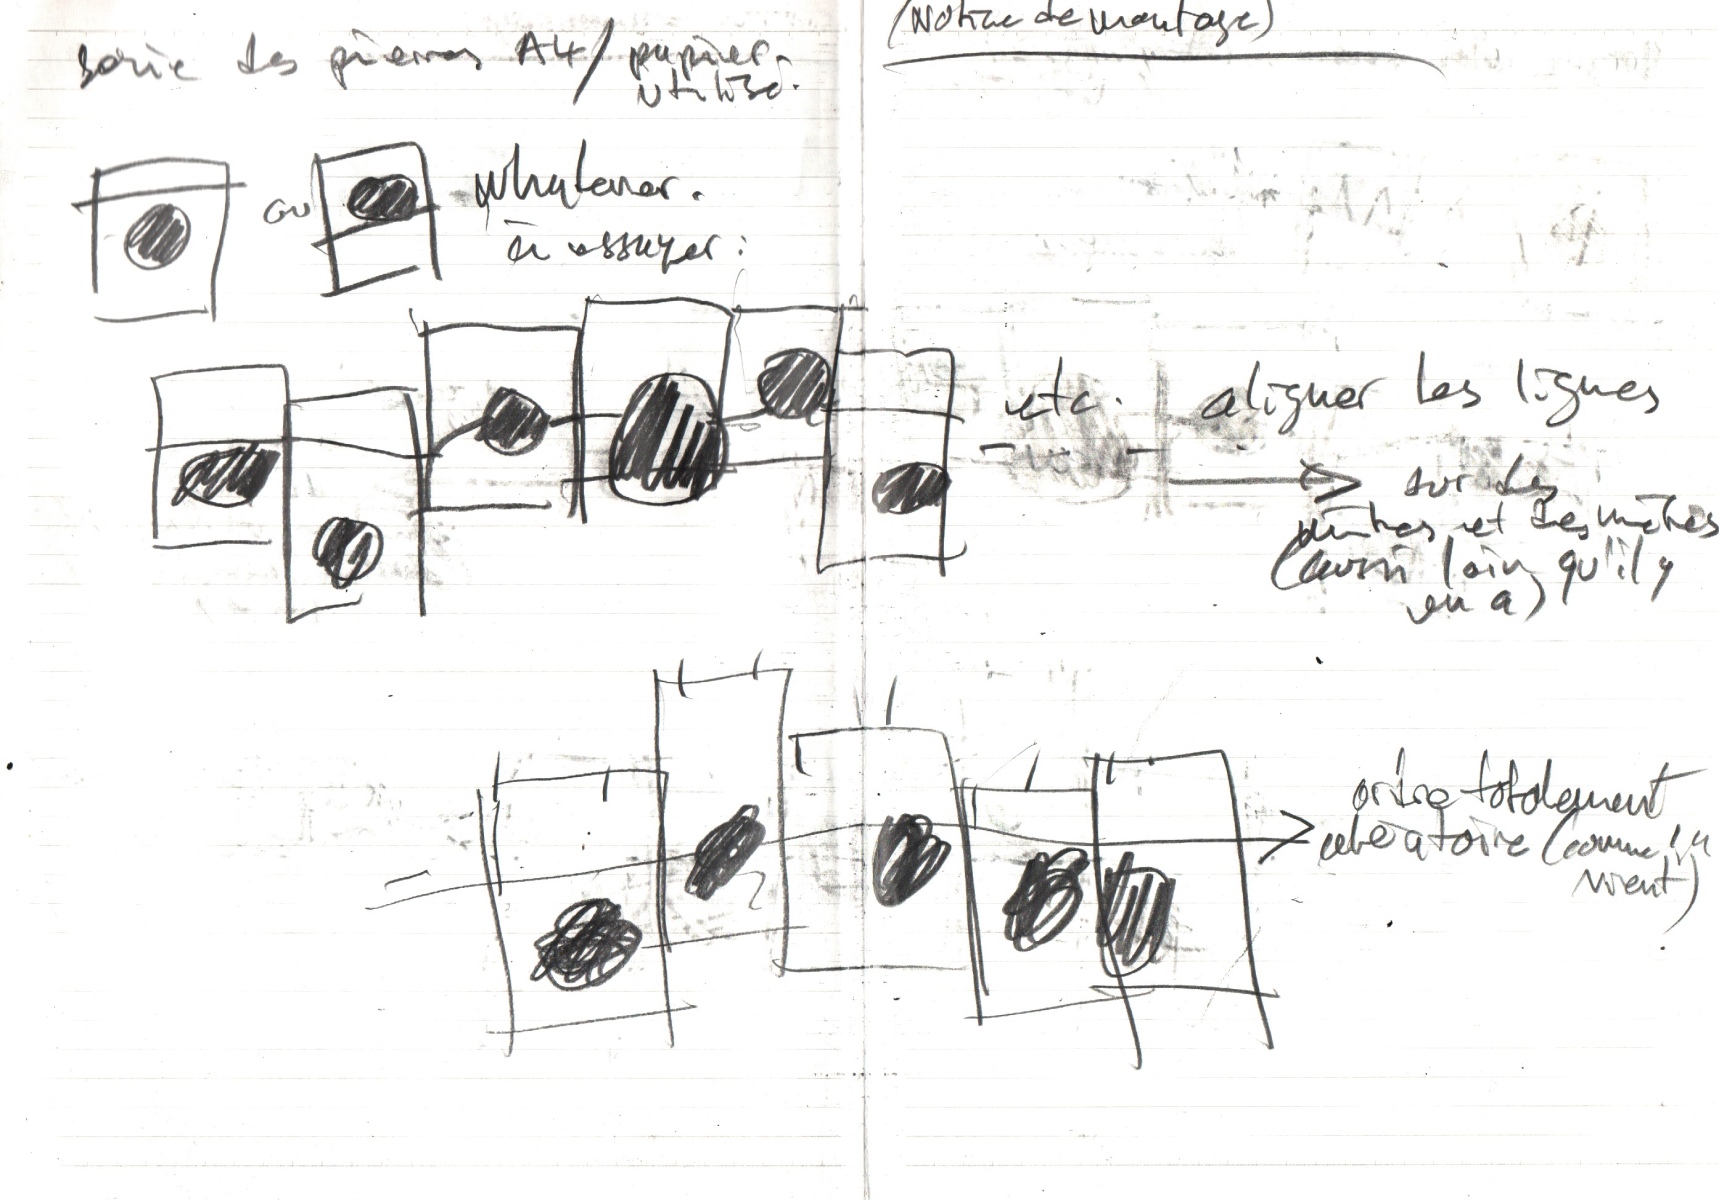 (Notice de montage)
série des pierres A4 / papier
utilisé.
ou
whatever.
à essayer :
etc. aligner les lignes
sur des
mètres et des mètres
(aussi loin qu'il y
en a)
ordre totalement
aléatoire (comme ça
vient)